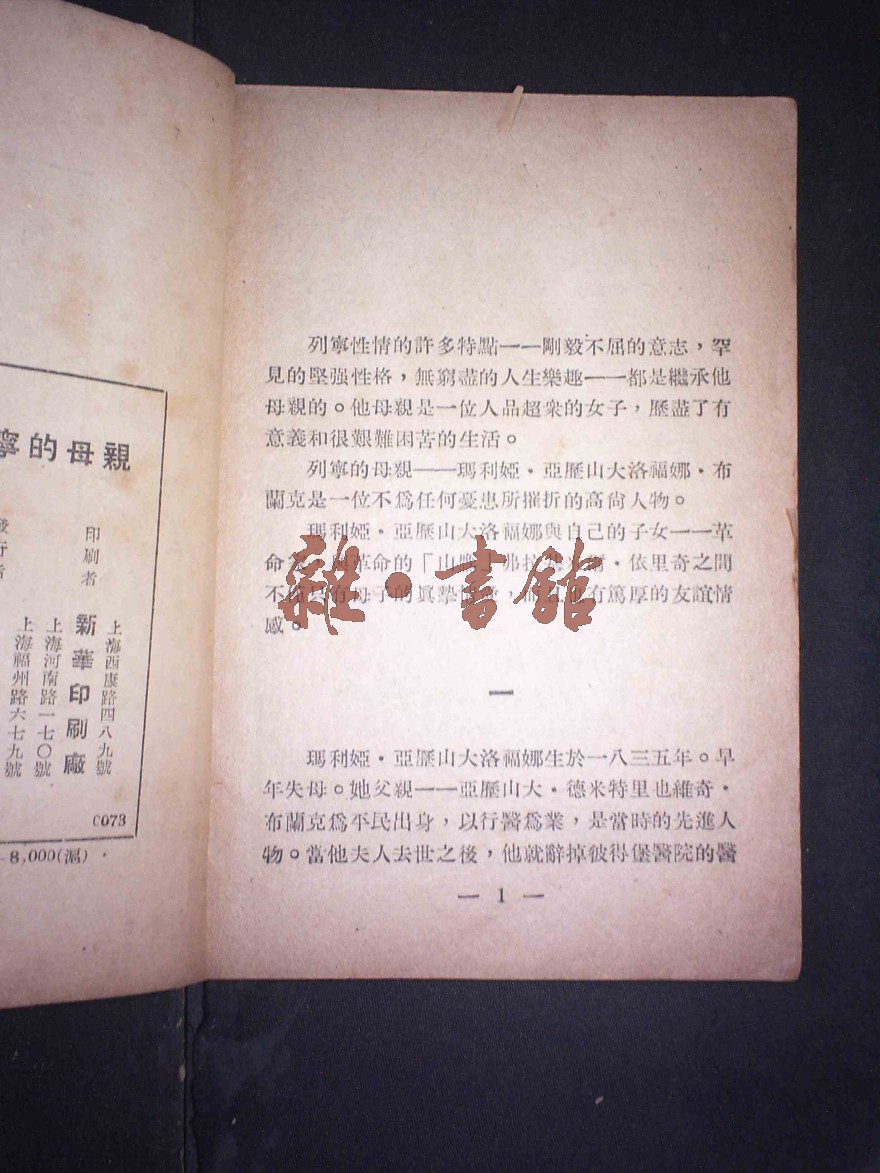 寧的母親
印刷者
新華印刷廠
上海西康路四八九號
上海河南路一七〇號
上海福州路六七九號
C073
8,000(滬)
列寧性情的許多特點——剛毅不屈的意志，罕
見的堅强性格，無窮盡的人生樂趣——都是繼承他
母親的。他母親是一位人品超衆的女子，歷盡了有
意義和很艱難困苦的生活。
列寧的母親——瑪利婭·亞歷山大洛福娜·布
蘭克是一位不爲任何憂患所摧折的高尙人物。
瑪利婭·亞歷山大洛福娜與自己的子女——革
命家，與革命的「山鷹」弗拉基米爾·依里奇之間
不僅只有母子的眞摯 而且也有篤厚的友誼情
感。
一
瑪利婭·亞歷山大洛福娜生於一八三五年。早
年失母。她父親——亞歷山大·德米特里也維奇·
布蘭克爲平民出身，以行醫爲業，是當時的先進人
物。當他夫人去世之後，他就辭掉彼得堡醫院的醫
— 1 —
雜·書館